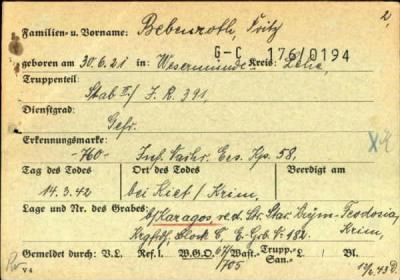 2,
Familien- u. Vorname: Bebenroth, Fritz
G-C 176/0194
geboren am 30.6.21 in: Wesermünde Kreis: Lehe
Truppenteil:
Stab II/ I.R. 391,
Dienstgrad:
Gefr.
Erkennungsmarke:
-760- Inf. Nachr. Ers. Kp. 58,
Tag des Todes Ort des Todes Beerdigt am
14.3.42 bei Kiet / Krim,
Lage und Nr. des Grabes: b/Karagos, n.d. Str. Star. Krym-Feodosia,
Krgfdh, Block C, E-Grb. Nr. 182. Krim,
Gemeldet durch: V.L. Ref. I. W.G.O. Wast.- Trupp.- San.- L. Bl.
1705
V 4